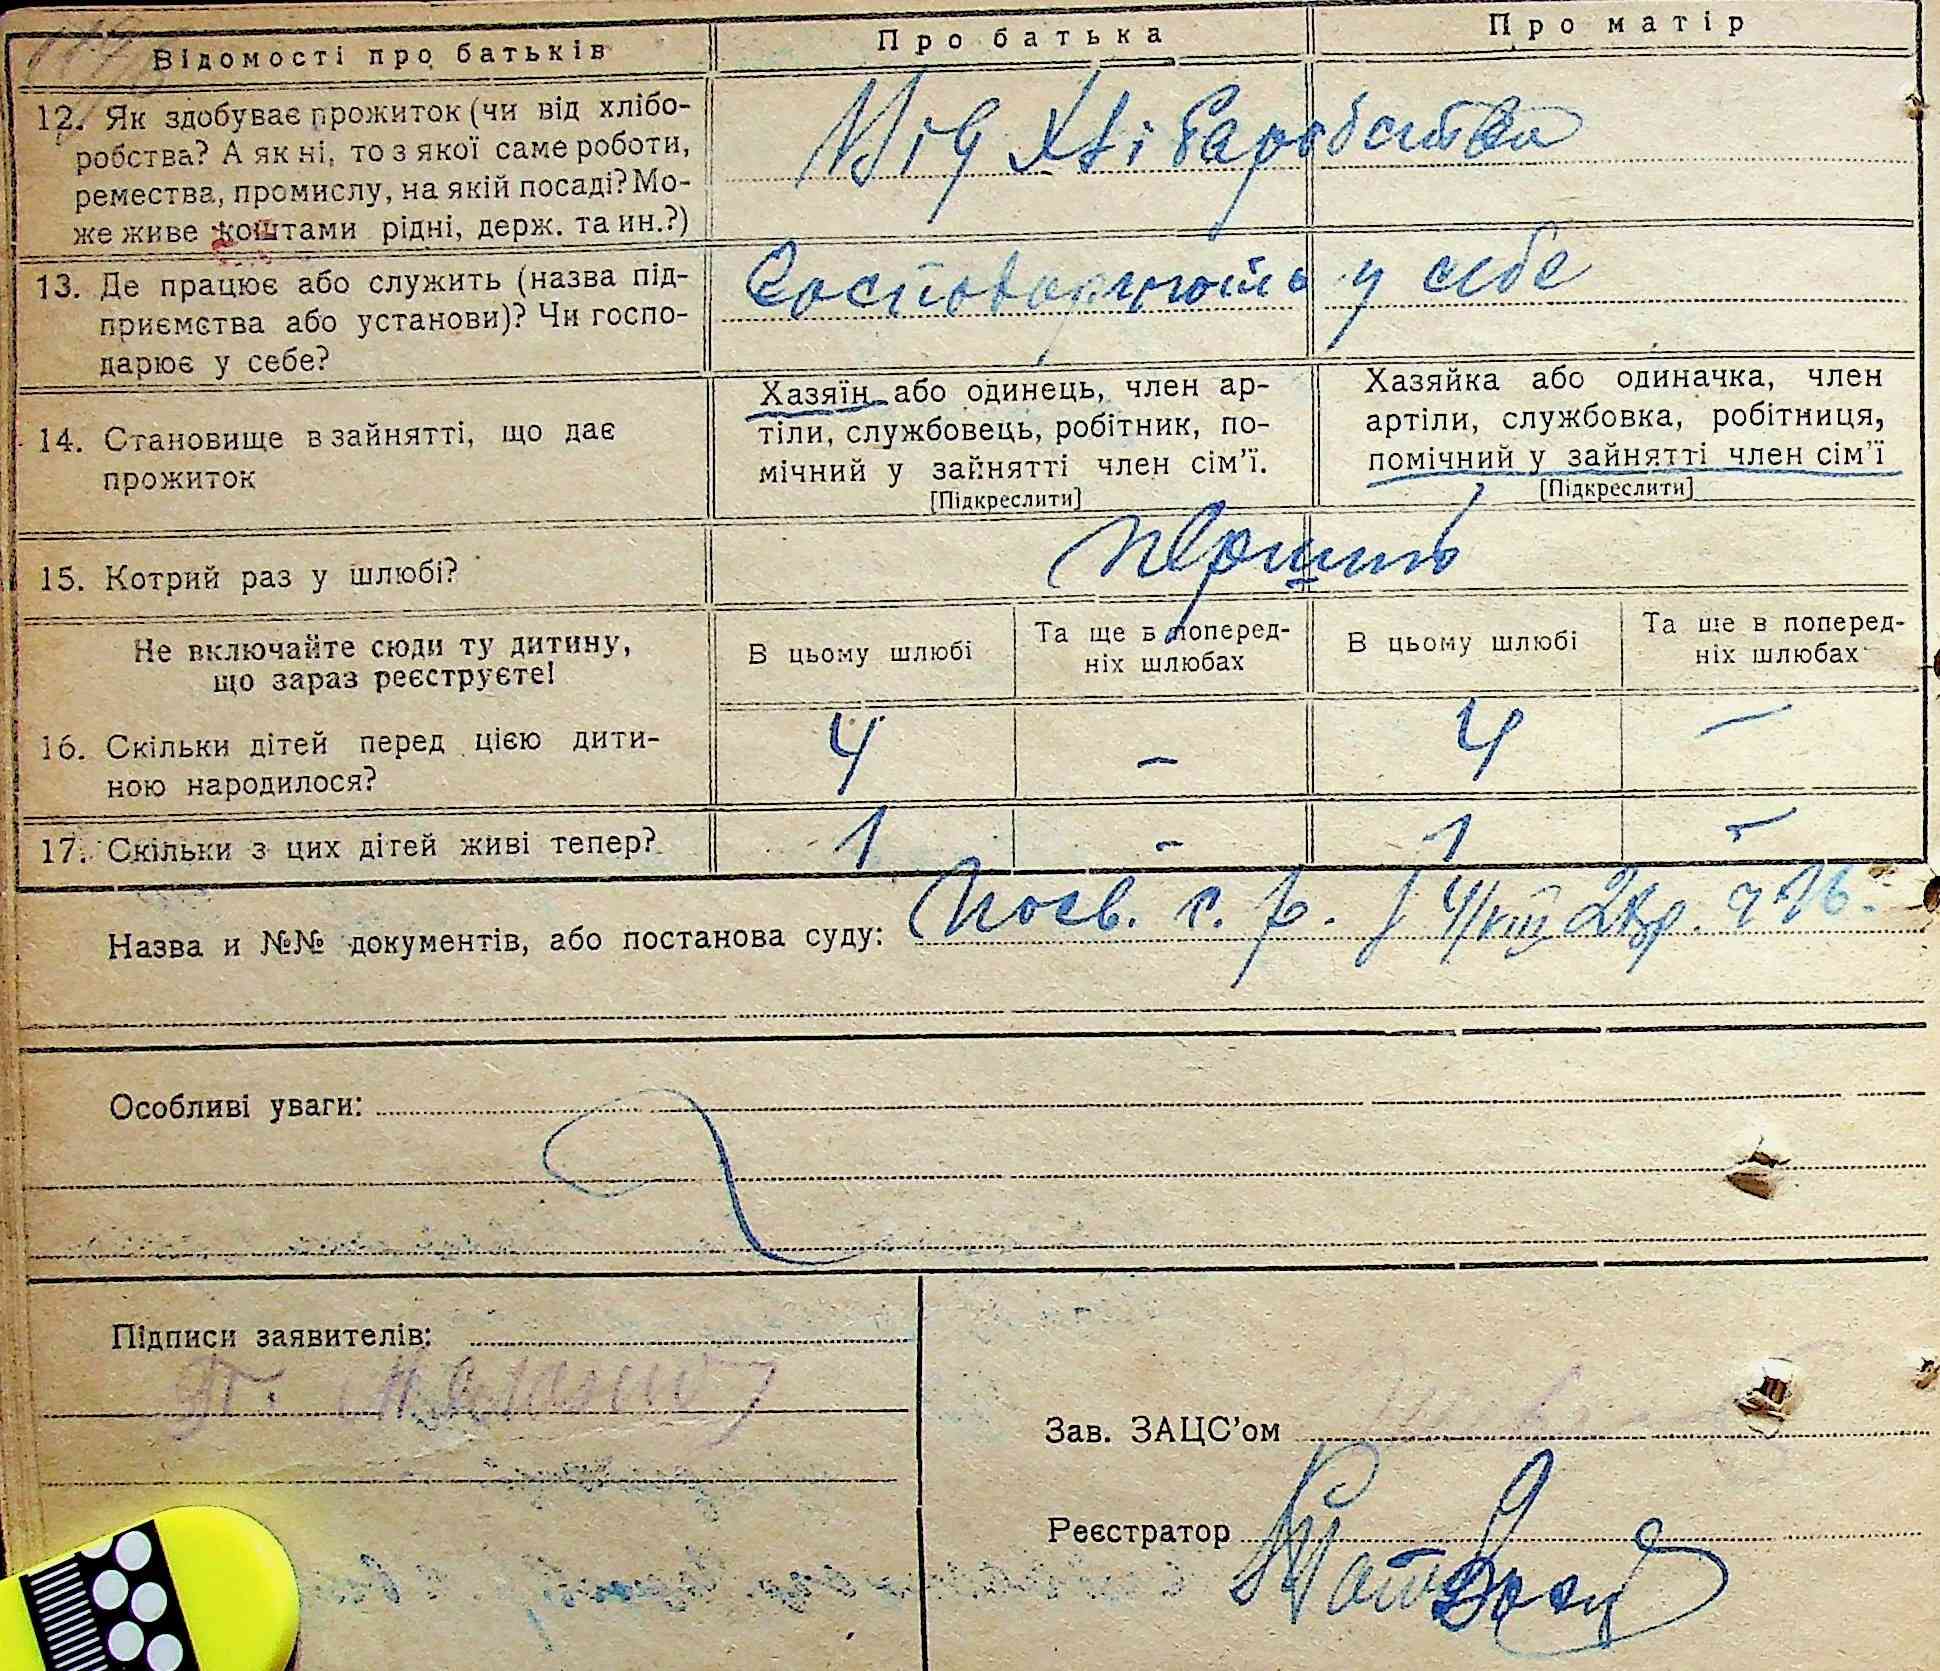 Відомості про батьків
Про батька
Про матір
12. Як здобуває прожиток (чи від хлібо-
робства? А як ні, то з якої саме роботи,
ремества, промислу, на якій посаді? Мо-
же живе коштами рідні, держ. та ин.?)
Від Хлібаробства
13. Де працює або служить (назва під-
приємства або установи)? Чи госпо-
дарює у себе?
Госповарюють у себе
14. Становище в зайнятті, що дає
прожиток
Хазяїн або одинець, член ар-
тіли, службовець, робітник, по-
мічний у зайнятті член сім'ї.
[Підкреслити]
Хазяйка або одиначка, член
артіли, службовка, робітниця,
помічний у зайнятті член сім'ї
[Підкреслити]
15. Котрий раз у шлюбі?
перший
Не включайте сюди ту дитину,
що зараз реєструєте!
В цьому шлюбі
Та ще в поперед-
ніх шлюбах
В цьому шлюбі
Та ще в поперед-
ніх шлюбах
16. Скільки дітей перед цією дити-
ною народилося?
4 – 4 –
17. Скільки з цих дітей живі тепер?
1 – 1 –
Назва и №№ документів, або постанова суду: Посв. с. р.
Особливі уваги:
Підписи заявителів:
Зав. ЗАЦС'ом
Реєстратор